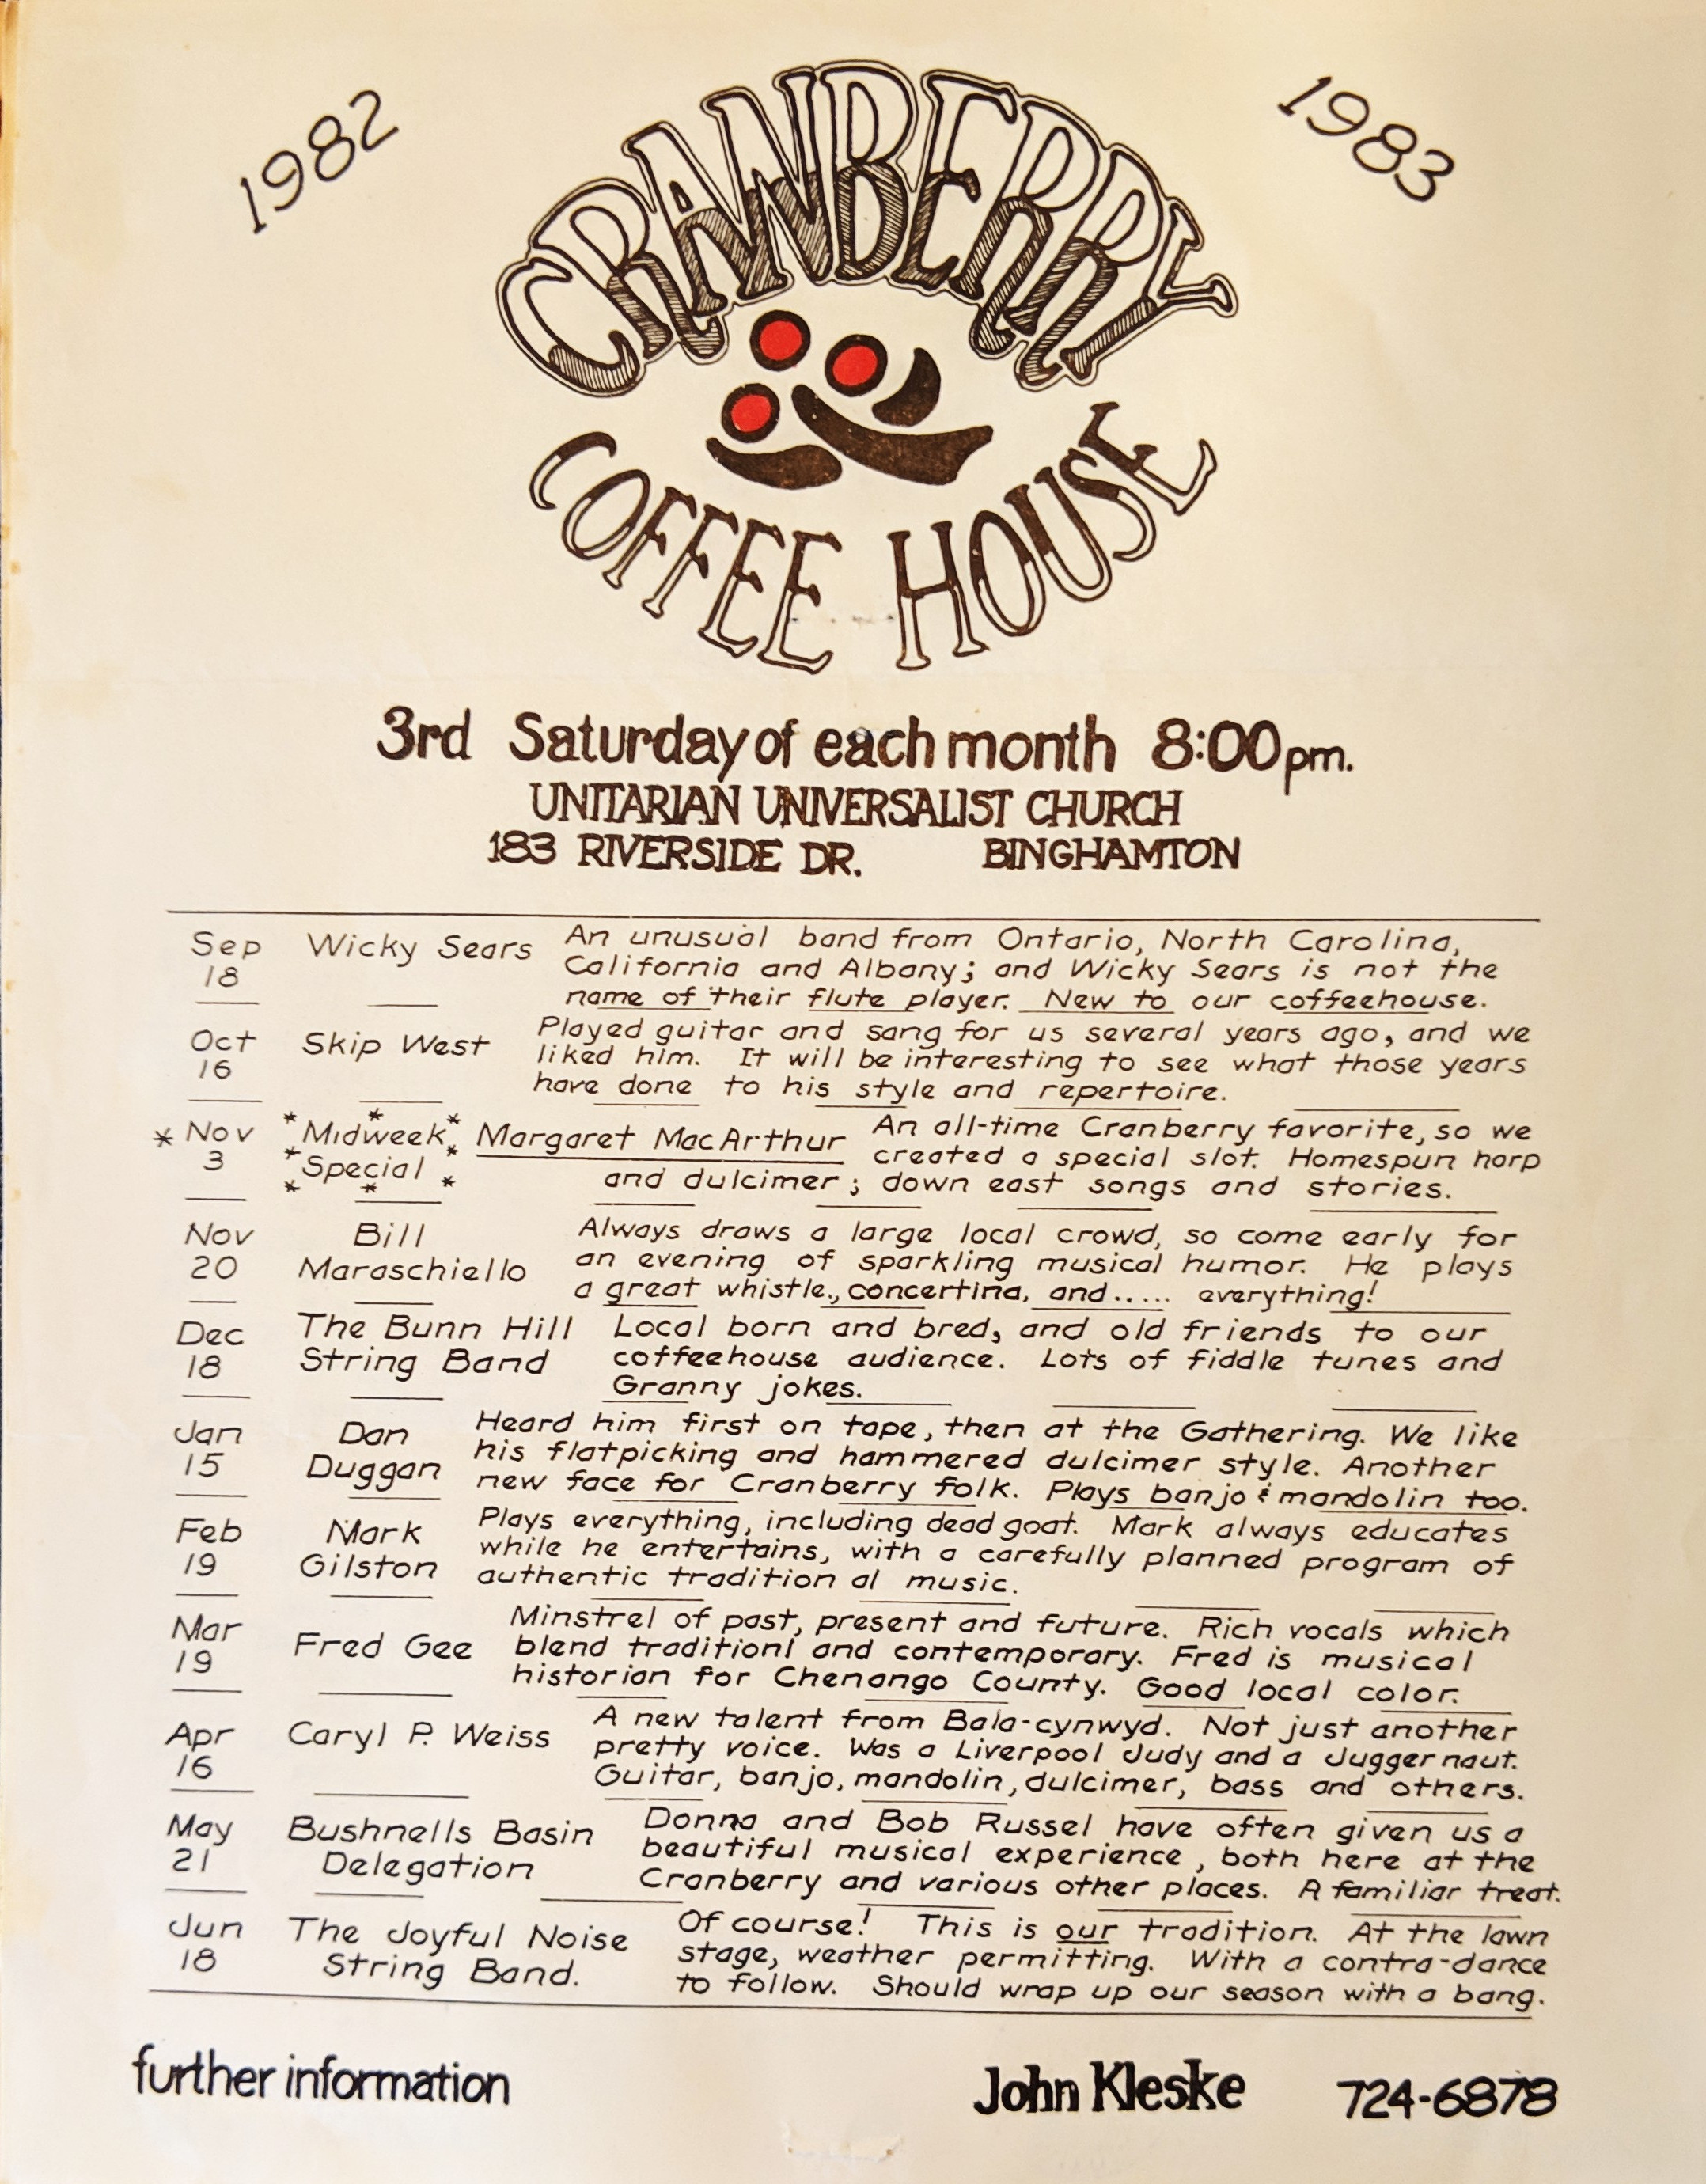 1982
1983
CRANBERRY
COFFEE HOUSE
3rd Saturday of each month 8:00 pm.
UNITARIAN UNIVERSALIST CHURCH
183 RIVERSIDE DR. BINGHAMTON
Sep 18 Wicky Sears An unusual band from Ontario, North Carolina,
California and Albany; and Wicky Sears is not the
name of their flute player. New to our coffeehouse.
Oct 16 Skip West Played guitar and sang for us several years ago, and we
liked him. It will be interesting to see what those years
have done to his style and repertoire.
* Nov 3 *Midweek* Margaret MacArthur An all-time Cranberry favorite, so we
*Special* created a special slot. Homespun harp
and dulcimer; down east songs and stories.
Nov 20 Bill Always draws a large local crowd, so come early for
Maraschiello an evening of sparkling musical humor. He plays
a great whistle., concertina, and..... everything!
Dec 18 The Bunn Hill Local born and bred, and old friends to our
String Band coffeehouse audience. Lots of fiddle tunes and
Granny jokes.
Jan 15 Dan Heard him first on tape, then at the Gathering. We like
Duggan his flatpicking and hammered dulcimer style. Another
new face for Cranberry folk. Plays banjo & mandolin too.
Feb 19 Mark Plays everything, including dead goat. Mark always educates
Gilston while he entertains, with a carefully planned program of
authentic tradition al music.
Mar 19 Fred Gee Minstrel of past, present and future. Rich vocals which
blend traditionl and contemporary. Fred is musical
historian for Chenango County. Good local color.
Apr 16 Caryl P. Weiss A new talent from Bala-cynwyd. Not just another
pretty voice. Was a Liverpool Judy and a Juggernaut.
Guitar, banjo, mandolin, dulcimer, bass and others.
May 21 Bushnells Basin Donna and Bob Russel have often given us a
Delegation beautiful musical experience, both here at the
Cranberry and various other places. A familiar treat.
Jun 18 The Joyful Noise Of course! This is our tradition. At the lawn
String Band. stage, weather permitting. With a contra-dance
to follow. Should wrap up our season with a bang.
further information John Kleske 724-6878